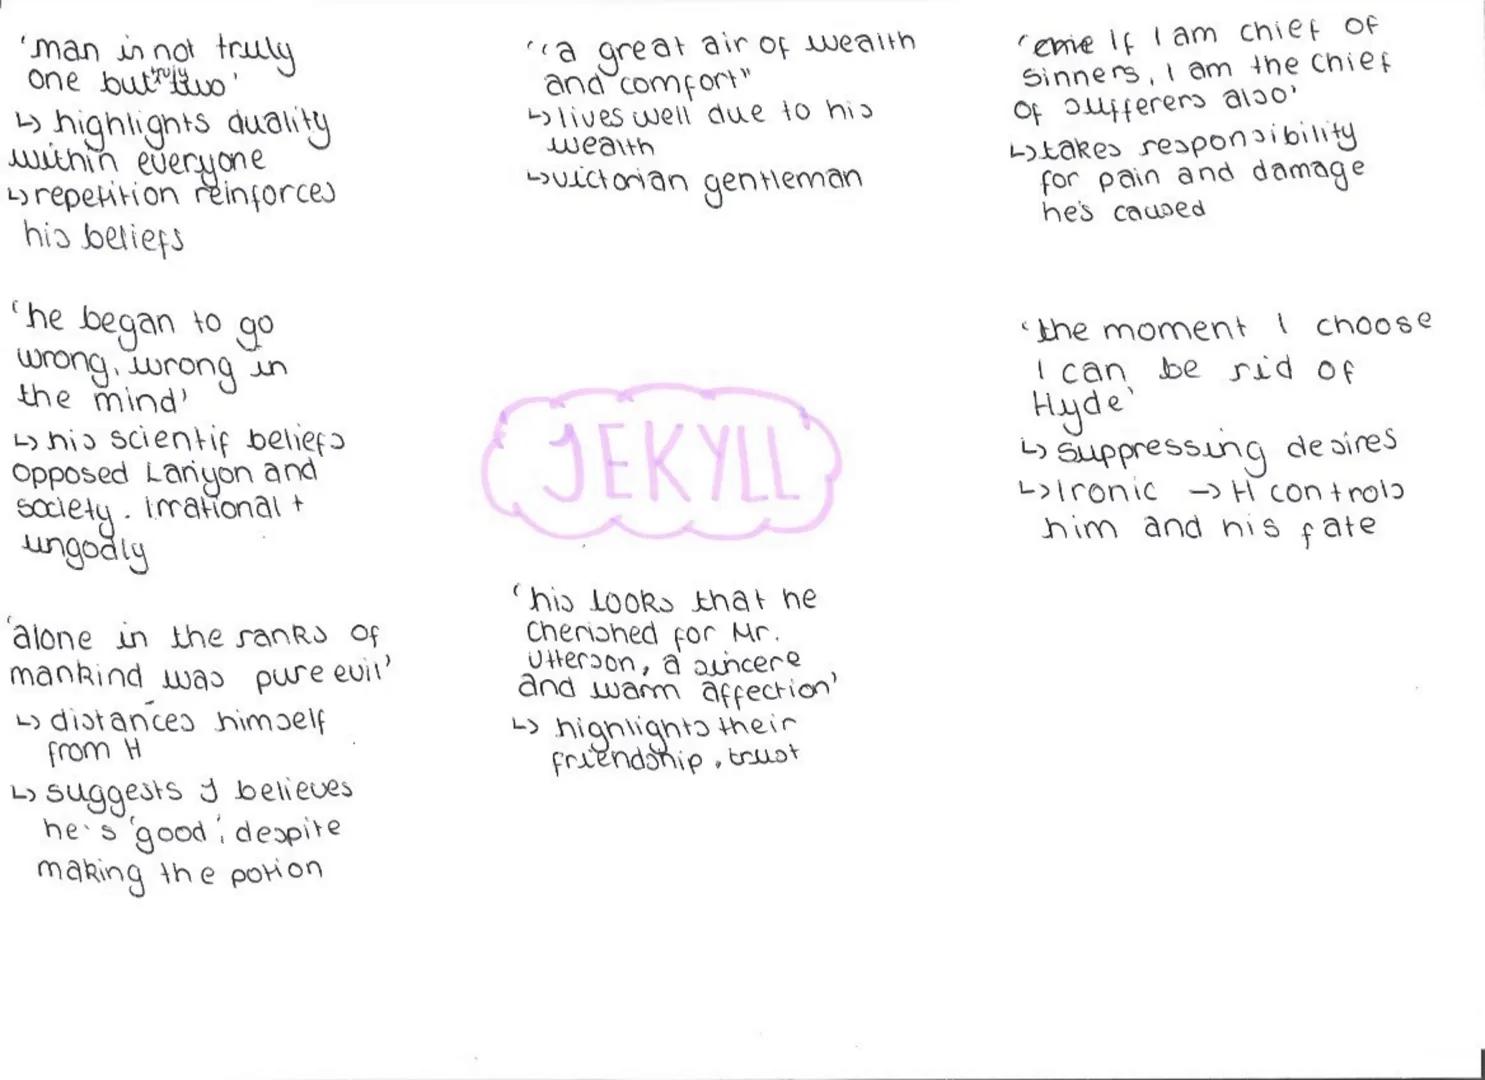 'man is not truly
one but truly two'
↳ highlights duality
within everyone
↳ repetition reinforces
his beliefs
"a great air of wealth
and comfort"
↳ lives well due to his
wealth
↳ victorian gentleman
'If I am chief of
sinners, I am the chief
of sufferers also'
↳ takes responsibility
for pain and damage
he's caused
'he began to go
wrong, wrong in
the mind'
↳ his scientif beliefs
opposed Lanyon and
society. irrational +
ungodly
JEKYLL
'the moment I choose
I can be rid of
Hyde'
↳ suppressing desires
↳ Ironic → H controls
him and his fate
'alone in the ranks of
mankind was pure evil'
↳ distances himself
from H
↳ suggests J believes
he's 'good', despite
making the potion
'his looks that he
cherished for Mr.
Utterson, a sincere
and warm affection'
↳ highlights their
friendship, trust